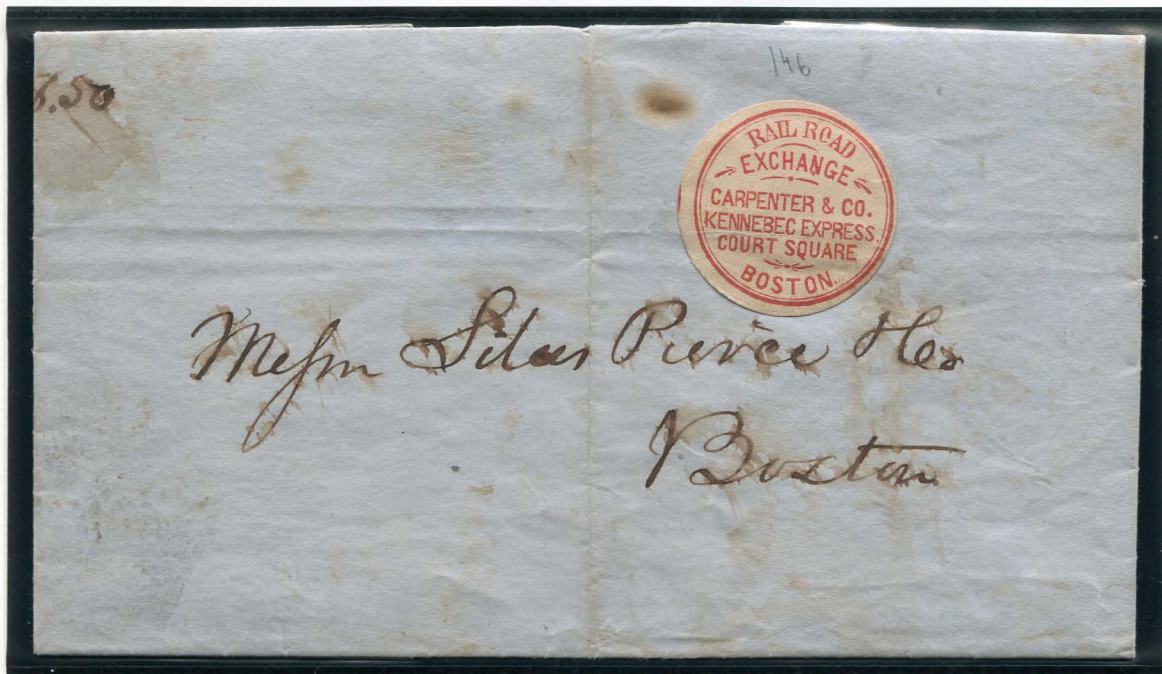 146
.50
RAIL ROAD
EXCHANGE
CARPENTER & CO.
KENNEBEC EXPRESS.
COURT SQUARE
BOSTON.
Messrs Silas Pierce & Co
Boston